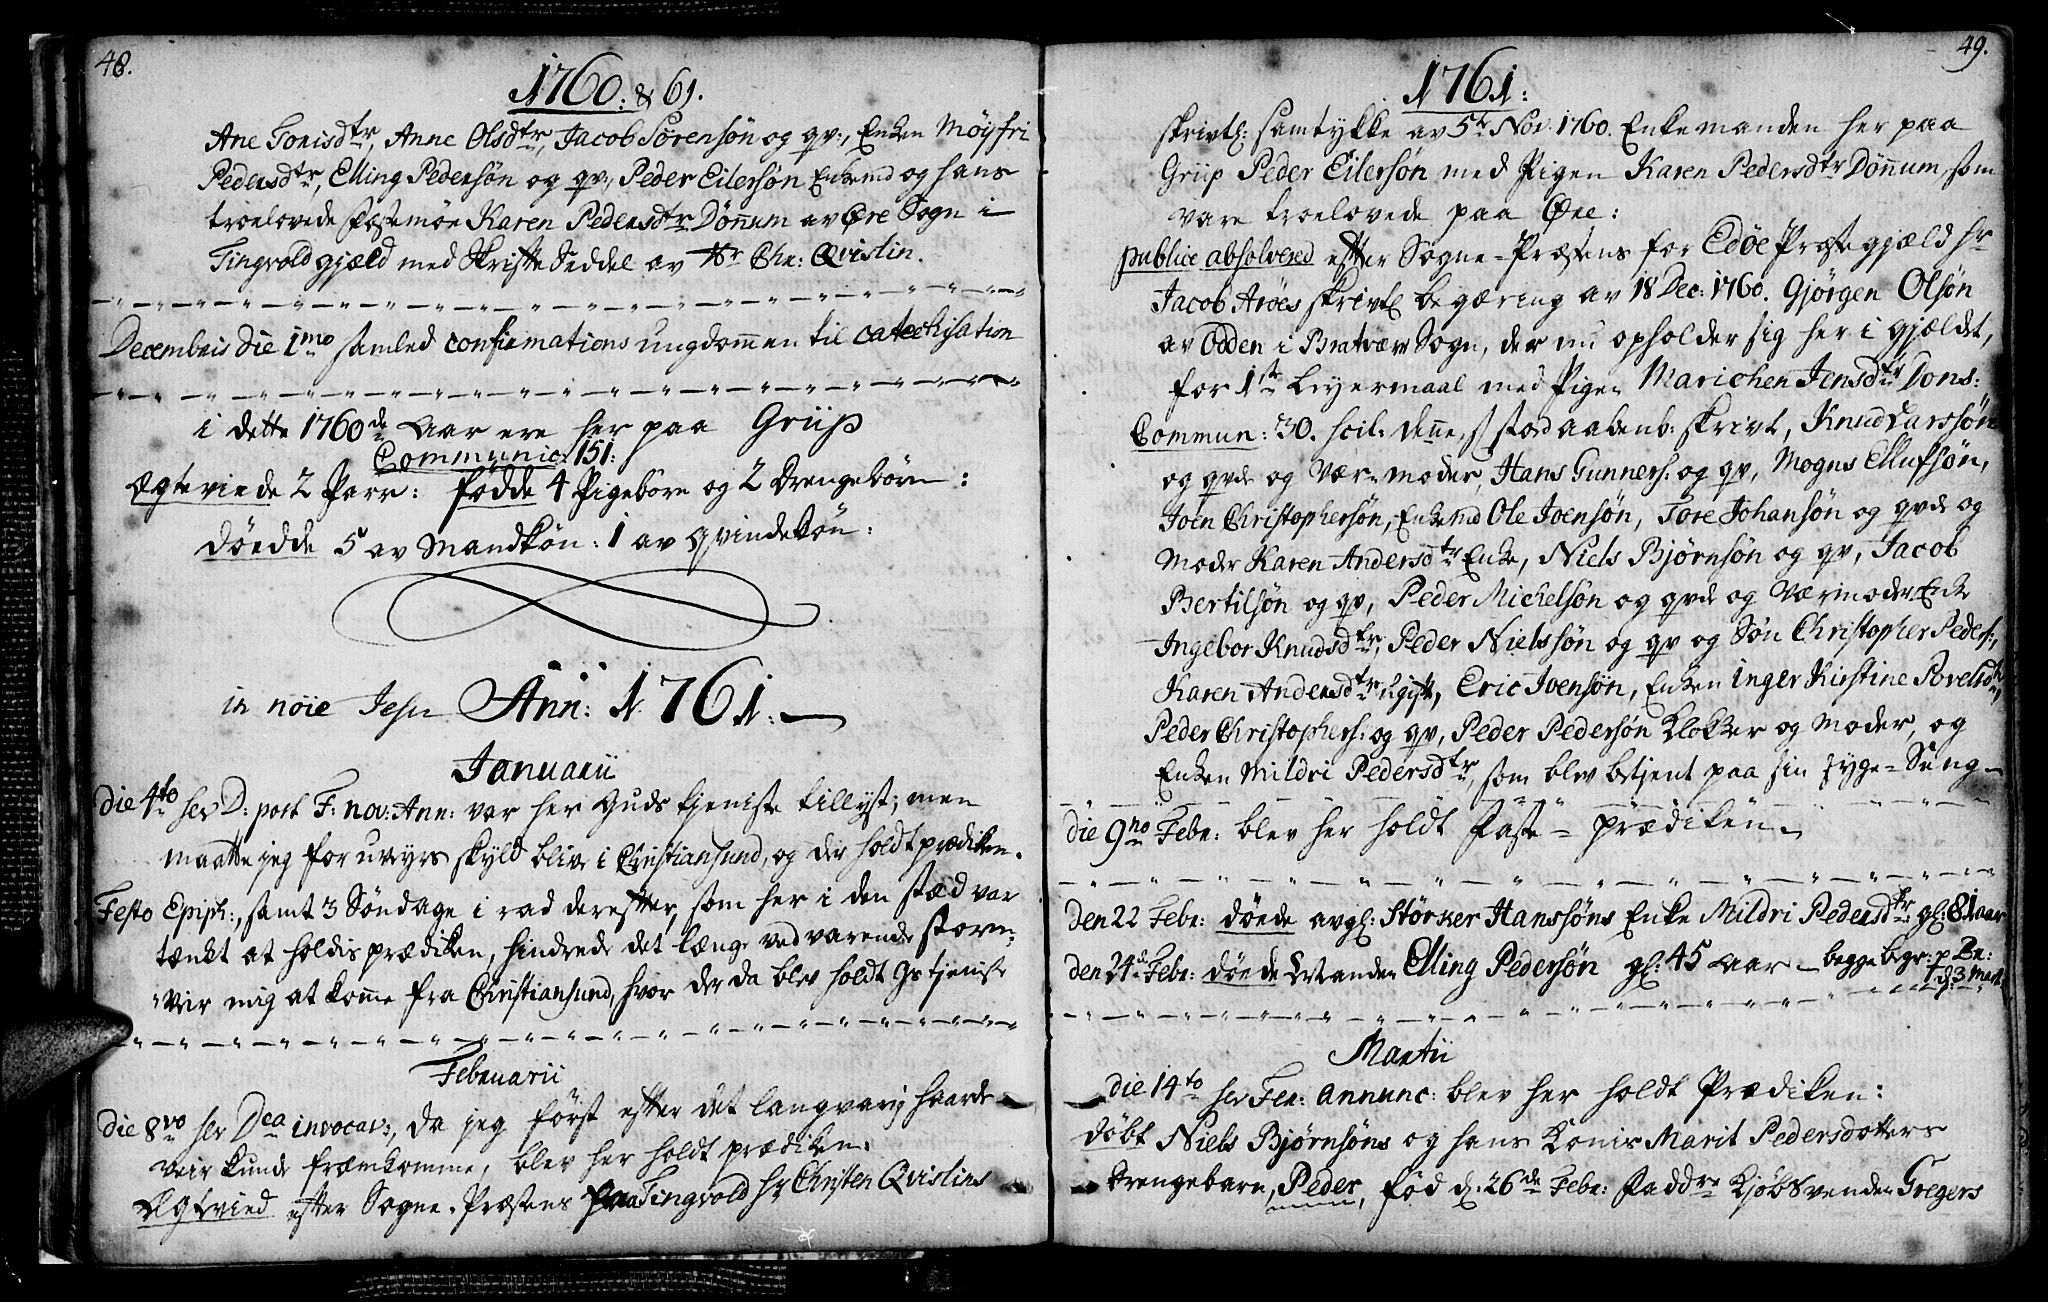 48.
1760: & 61.
Ane Tonisdtr, Anne Olsdtr, Jacob Sörensøn og qv:, Enken Møyfri
Pedersdtr, Elling Pedersøn og qv, Peder Eilersøn Enkemd og hans
troelovede Fæstemøe Karen Pedersdtr Dönnum av Öre Sogn i
Tingvold gjæld med Skrifte Seddel av Hr Chr: Qvislin.
Decembris die 1mo samled confirmations ungdommen til catechisation
i dette 1760de Aar ere her paa Griip
Communic: 151:
Ægteviede 2 Parr: fødde 4 Pigebørn og 2 Drengebörn:
Döedde 5 av Mandkön: 1 av Qvindekön:
in nöie Jesu Ann: 1761.
Januarii
Die 4to ser D: post F: nov: Ann: var her Guds tjeniste tillyst; men
maatte jeg for uveyrs skyld blive i Christiansund, og der holdt prædiken.
Festo Epiph:, samt 3 Söndage i rad derefter, som her i den stæd var
tænkt at holdis prædiken, hindrede det længe vedvarende storm-
Veir mig at komme fra Christiansund, hvor der da blev holdt Gs tjenise
Februarii
Die 8vo ser Dca invocav:, da jeg först efter det langvarig haarde
veir kunde fremkomme, blev her holdt prædiken.
Ægtvied efter Sogne-Præstens paa Tingvold Hr Christen Qvislins
49.
1761:
skrivtl: samtykke av 5te Nov. 1760. Enkemanden her paa
Griip Peder Eilersøn med Pigen Karen Pedersdtr Dönnum, som
vare troelovede paa Öre:
publice absolvered efter Sogne-Præstens for Edöe Præstegjæld Hr
Jacob Aröes skrivtl begæring av 18 Dec: 1760. Gjörgen Olsön
av Odden i Bratvær Sogn, der nu opholder sig her i gjældet,
for 1ste Leyermaal med Pigen Marichen Jensdtr Dons:
Commun: 30. scil: denne, st stod aabenb: skrivt, Knud Larssön
og qvde og Vær-moder, Hans Gunners: og qv, Mogns Ellufsön,
Joen Christophersön, Enkemd Ole Joensön, Tore Johansön og qvde og
Moder Karen Andersdtr Enke, Niels Björnsön og qv, Jacob
Bertilsön og qv, Peder Michelsön og qvde og Værmoder Enke
Ingebor Knudsdtr, Peder Nielssön og qv og Sön Christopher Peders:,
Karen Andersdtr ugift, Eric Ivensön, Enken Inger Kirstine Povelsdtr,
Peder Christophers: og qv, Peder Pedersön Klokker og Moder, og
Enken Mildri Pedersdtr, som blev betjent paa sin syge-Seng
die 9no Febr: blev her holdt Faste-prædiken.
Den 22 Febr: döede avgl: Störker Hanssöns Enke Mildri Pedersdtr gl: 81 aar
den 24d Febr: döede Ectmanden Elling Pedersön gl: 45 aar begge begr: p Br:
d: 3 Mart.
Martii
die 14to ser Fer: annunc: blev her holdt Prædiken:
döbt Niels Björnsöns og hans Konis Marit Pedersdotters
Drengebarn, Peder, fød d: 26de Febr: Faddre Kjöbsvenden Gregers